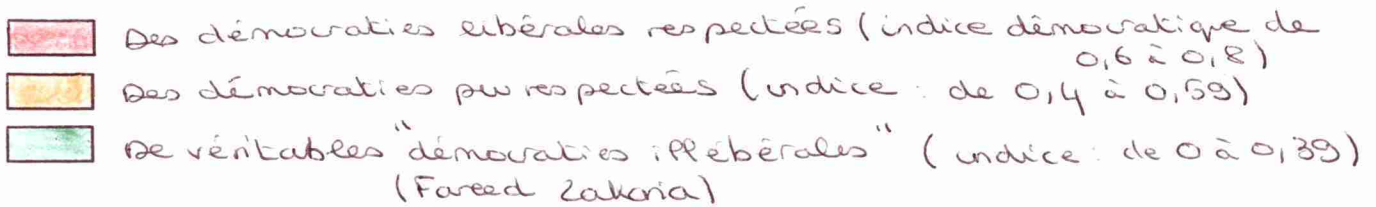 Des démocraties libérales respectées (indice démocratique de
0,6 à 0,8)
Des démocraties peu respectées (indice : de 0,4 à 0,59)
De véritables "démocraties illébérales" (indice : de 0 à 0,39)
(Fareed Zakaria)